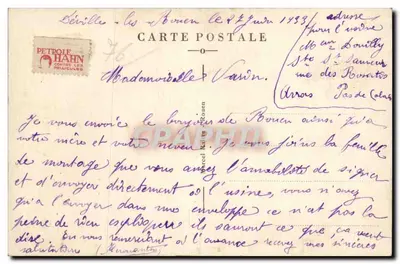 Déville les Rouen le 27 Juin 1933
CARTE POSTALE
adresse
pour l'usine
Mon Douilly
Ste St Sauveur
rue des Rosates
Arras Pas de Calais
PETROLE
HAHN
76
Mademoiselle Varin.
Je vous envoie le bonjour de Rouen ainsi qu'a
votre mère et votre neveu. Je vous joins la feuille
de montage que vous aurez l'amabilité de signer
et d'envoyer directement à l'usine, vous n'avez
qu'a l'envoyer dans une enveloppe ce n'est pas la
peine de rien expliquer ils sauront ce que ça veut
dire En vous remerciant à l'avance recevez mes sincères
salutations